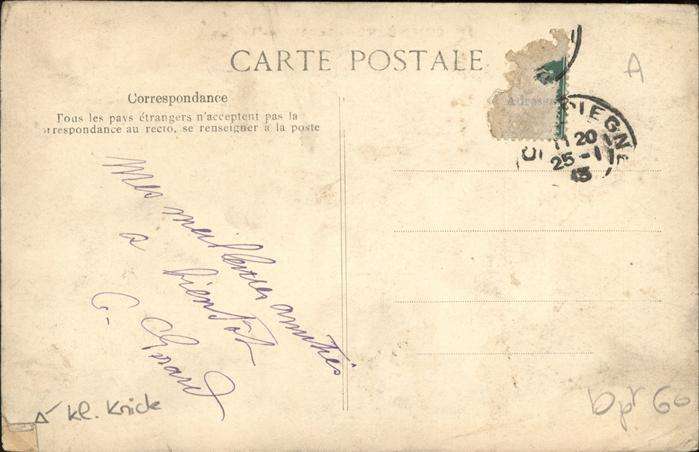 CARTE POSTALE
A
Correspondance
Tous les pays étrangers n'acceptent pas la
correspondance au recto, se renseigner à la poste
Adresse
PIEGNE
11 20
25-1
13
Mes meilleures amitiés
a bientôt
C.
kl. Knick
Dpt 60